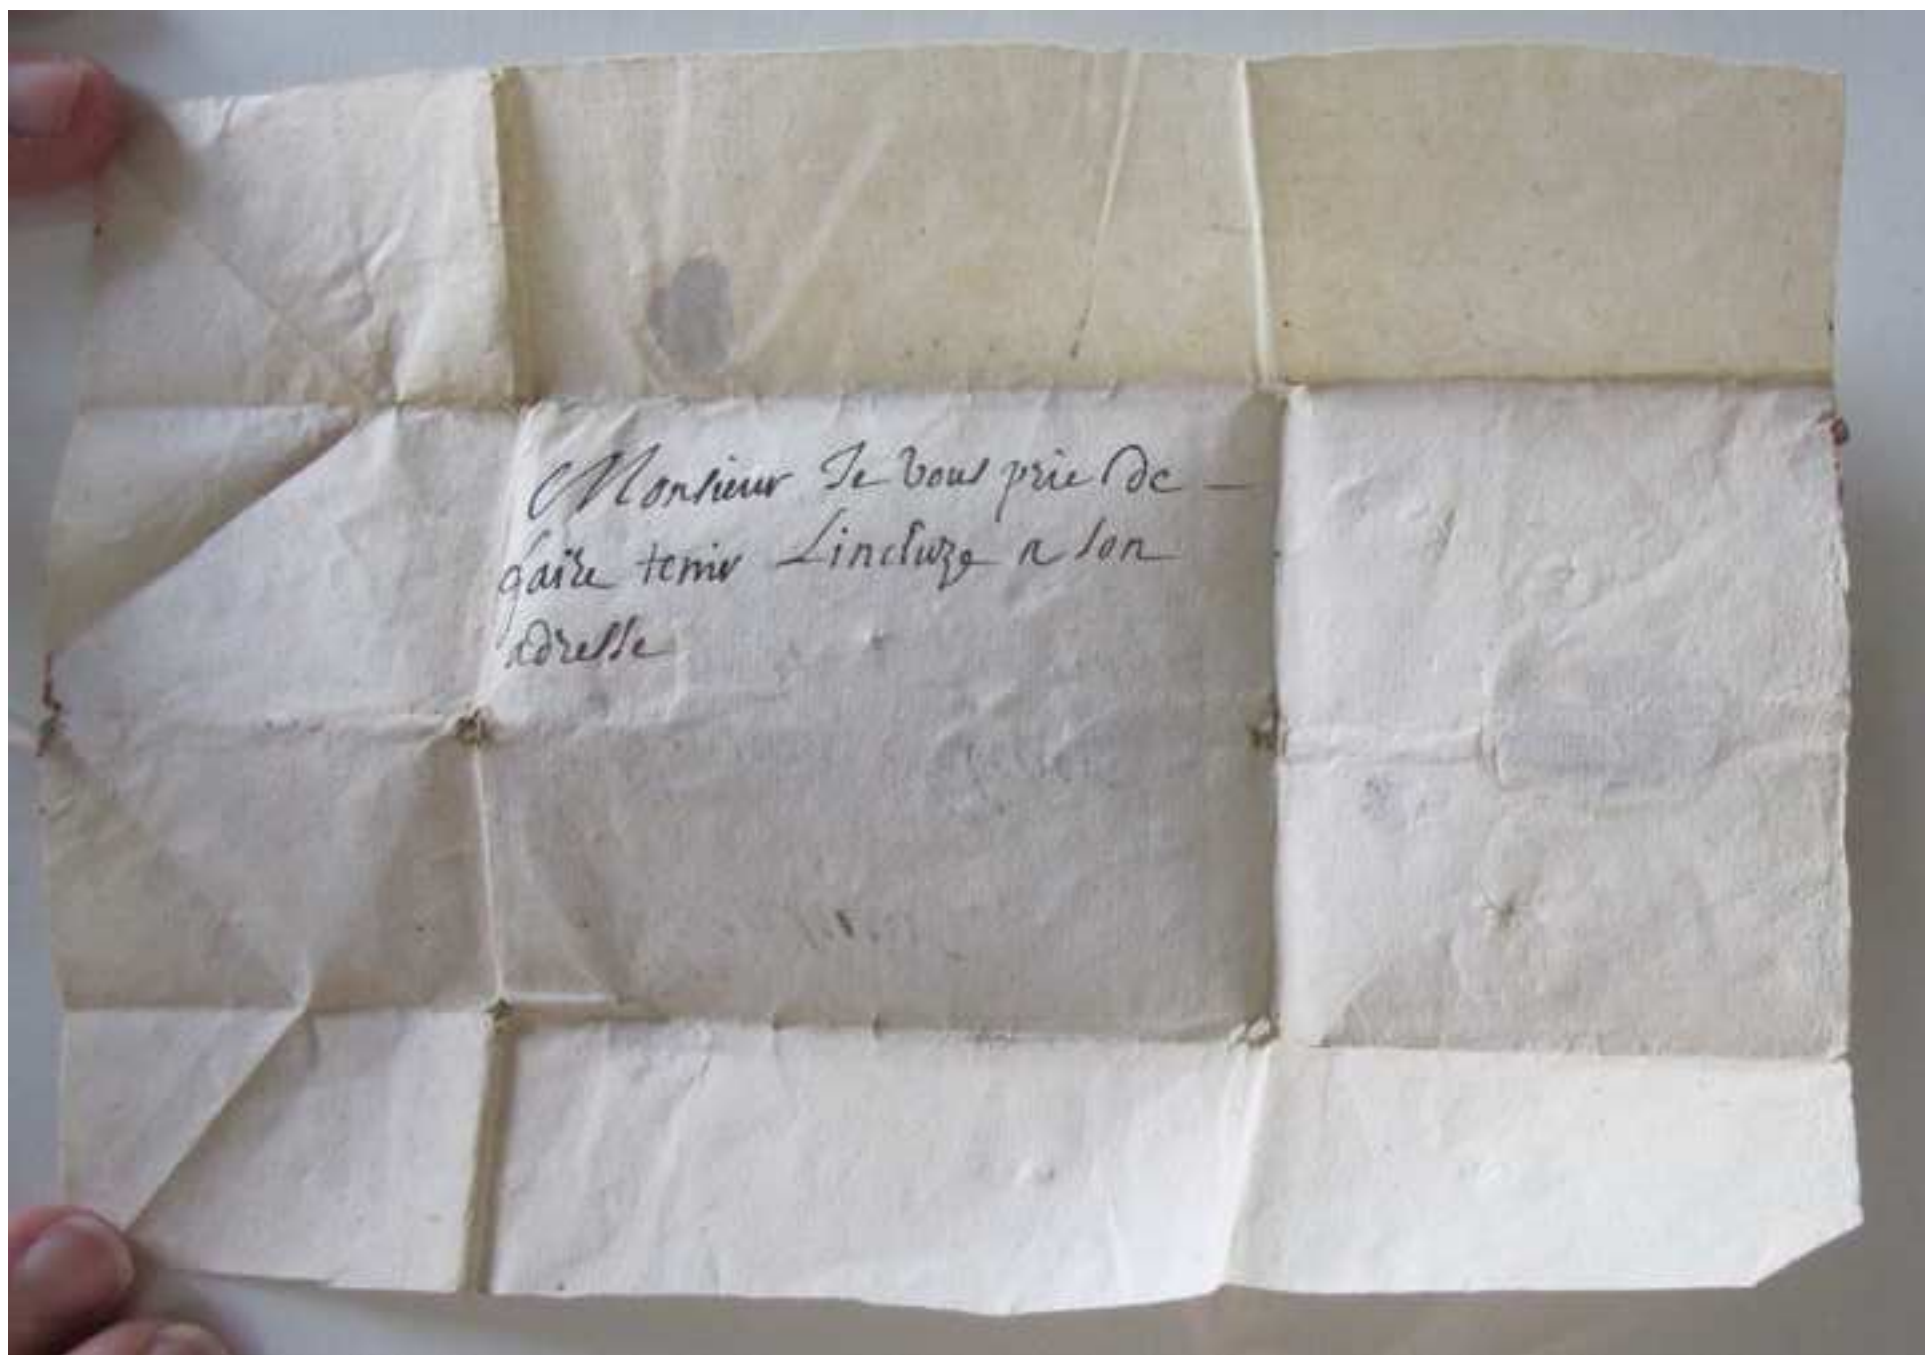 Monsieur Je vous prie de —
faire tenir Lincluze a son
adresse